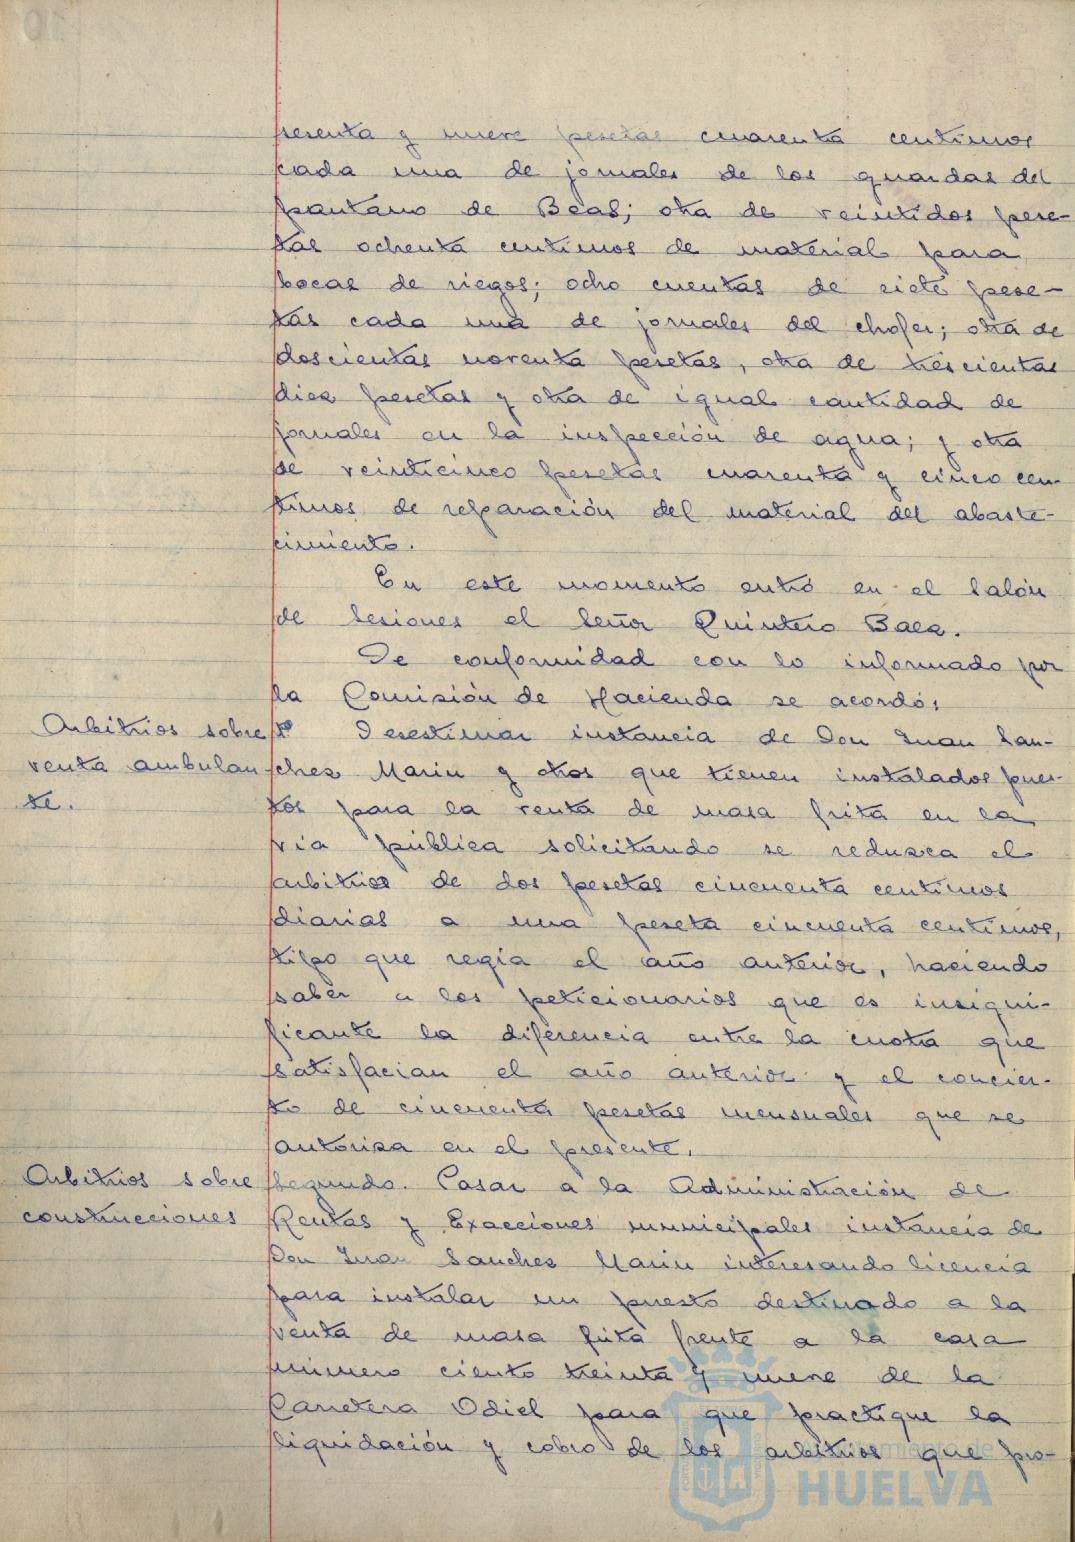 sesenta y nueve pesetas cuarenta centimos
cada una de jornales de los guardas del
pantano de Beas; otra de veintidos pese-
tas ochenta centimos de material para
bocas de riegos; ocho cuentas de siete pese-
tas cada una de jornales del chofer; otra de
doscientas noventa pesetas, otra de trescientas
diez pesetas y otra de igual cantidad de
jornales en la inspección de agua; y otra
de veinticinco pesetas cuarenta y cinco cen-
timos de reparación del material del abaste-
cimiento.
En este momento entró en el Salón
de Sesiones el Señor Quintero Baez.
De conformidad con lo informado por
la Comisión de Hacienda se acordó:
Arbitrios sobre
venta ambulan
te.
1º Desestimar instancia de Don Juan San-
chez Marin y otros que tienen instalados pues-
tos para la venta de masa frita en la
via pública solicitando se reduzca el
arbitrio de dos pesetas cincuenta centimos
diarias a una peseta cincuenta centimos,
tipo que regia el año anterior, haciendo
saber a los peticionarios que es insigni-
ficante la diferencia entre la cuota que
satisfacian el año anterior y el concier-
to de cincuenta pesetas mensuales que se
autoriza en el presente.
Arbitrios sobre
construcciones
Segundo. Pasar a la Administración de
Rentas y Exacciones municipales instancia de
Don Juan Sanchez Marin interesando licencia
para instalar un puesto destinado a la
venta de masa frita frente a la casa
número ciento treinta y nueve de la
Carretera Odiel para que practique la
liquidación y cobro de los arbitrios que pro-
Ayuntamiento de
HUELVA